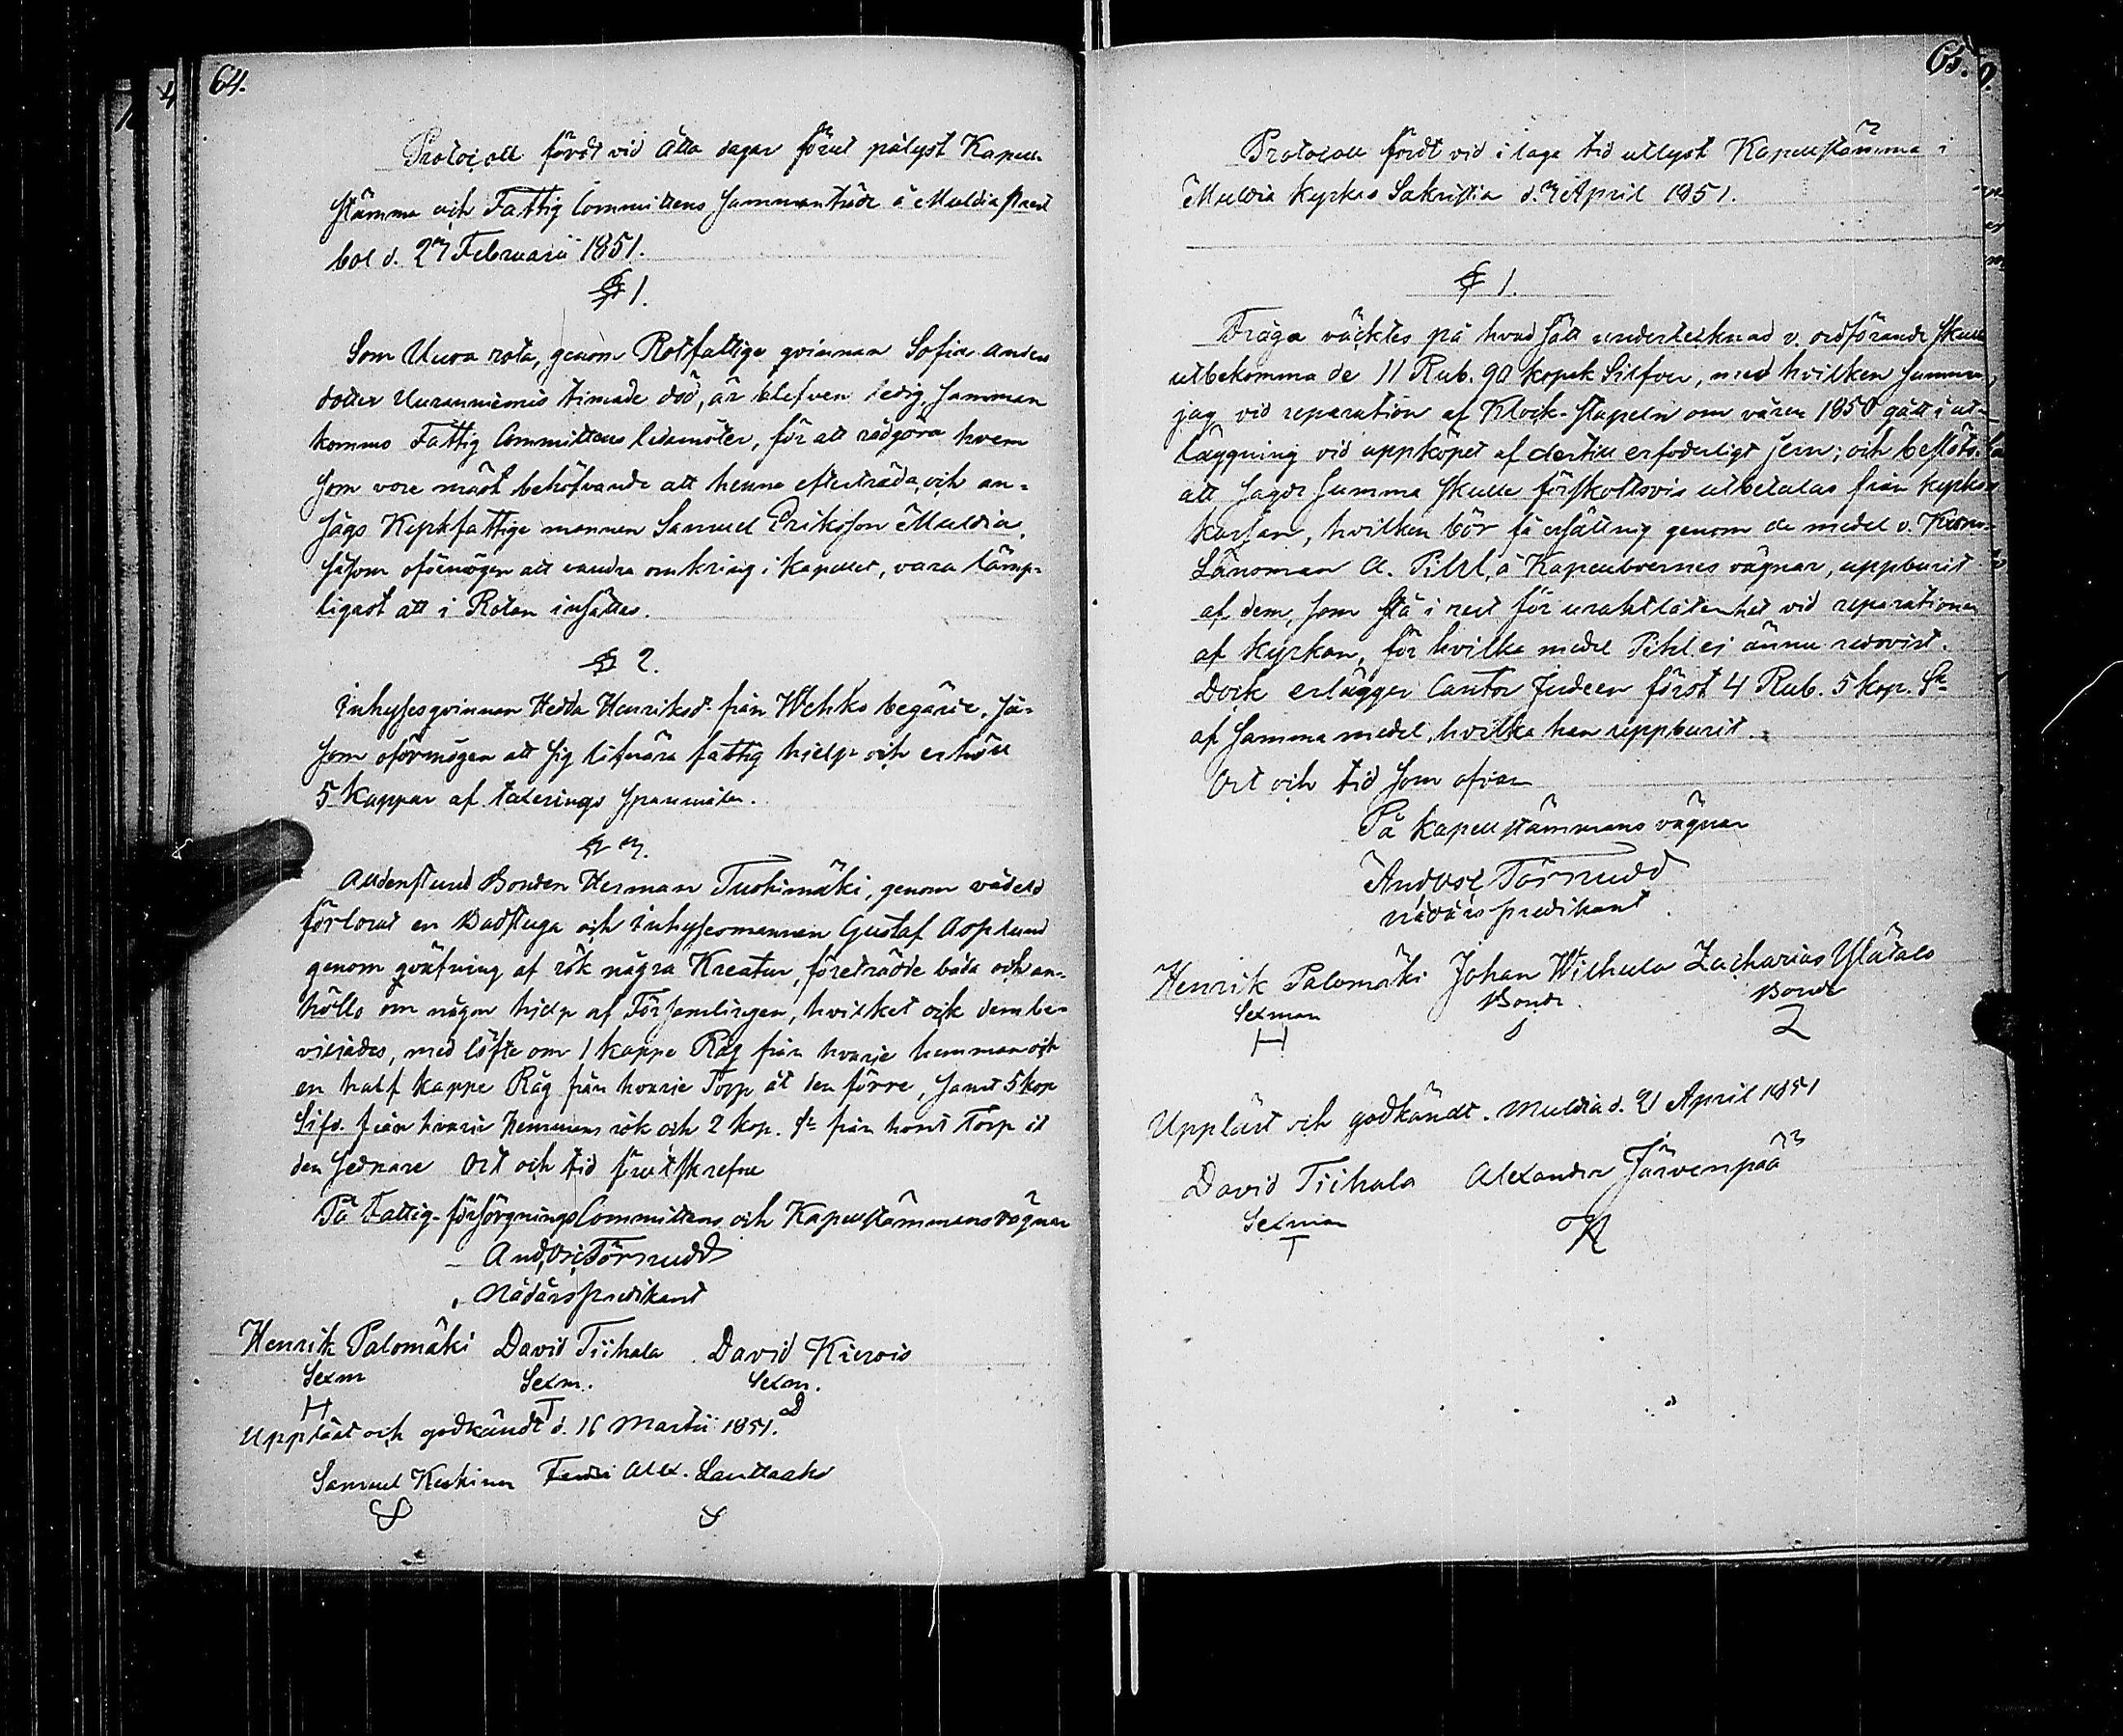 64.
Protocoll fördt vid åtta dagar förut pålyst Kapell-
stämma och Fattig Committens sammanträde å Muldia prest
bol d. 27 Februarii 1851.
§ 1.
Som Uura rota, genom Rotfattiga qvinnan Sofia Anders
dotter Uuranniemis timade död, är blefven ledig, samman
kommo Fattig Committens ledamöter, för att rådgöra hvem
som vore mäst behöfvande att henne efterträda, och an-
sågs Kyrkfattige mannen Samuel Eriksson Muldia,
såsom oförmögen att vandra omkring i kapellet, vara lämp-
ligast att i Rotan insättas.
§ 2.
Inhysesqvinnan Hedda Henriksdr från Wehko begärde, så-
som oförmögen att sig lifnära fattig hjelp och erhöll
5 kappar af tolerings spanmålen.
§ 3.
Alldenstund Bonden Herman Tuohimäki, genom vådeld
förlorat en Badstuga och Inhysesmannen Gustaf Asplund
genom qväfning af rök några Kreatur, företrädde båda och an-
höllo om någon hjelp af Församlingen, hvilket ock dem be-
viljades, med löfte om 1 kappe Råg från hvarje hemman och
en half kappe Råg från hvarje Torp åt den förre, samt 5 kop
Silfv. från hvarje hemmans rök och 2 kop. Sr från hvart Torp åt
den sednare Ort och tid förutskrefne
På Fattig-försörgnings Committens och Kapellstämmans vägnar
And, Ori, Törnudd
Nådårspredikant
Henrik Palomäki David Tiihala David Kierois
Sexm Sexm. Sexm.
H T D
Uppläst och godkändt d. 16 Martii 1851.
Samuel Keskinen Alex. Lauttaaho
65.
Protocoll fördt vid i laga tid utlyst Kapellstämma i
Muldia Kyrkas Sakristia d. 3 April 1851.
§ 1.
Fråga väcktes på hvad sätt undertecknad v. ordförande skulle
utbekomma de 11 Rub. 90 kopek Silfver, med hvilken summa
jag vid reparation af Klock-stapeln om våren 1850 gått i ut-
läggning vid uppköpet af dertill erfoderligt jern; och beslöts
att sagde summa skulle förskottsvis utbetalas från kyrko
kassan, hvilken bör få ersättnig genom de medel v. Krono-
Länsman A. Pihl, å Kapellboernes vägnar, uppburit
af dem, som stå i rest för uraktlåtenhet vid reparationen
af kyrkan, för hvilka medel Pihl ej ännu redovist.
Dock erlägger Cantor Judeen först 4 Rub. 5 kop. Sr
af samma medel, hvilka han uppburit.
Ort och tid som ofvan
På kapellstämmans vägnar
Törnudd
nådårs predikant.
Henrik Palomäki Johan Wilhula Zacharias Ylätalo
Sexman Bonde. Bonde
H J Z
Uppläst och godkändt. Muldia d. 21 April 1851
David Tiihala Alexander Järvenpää
Sexman
T